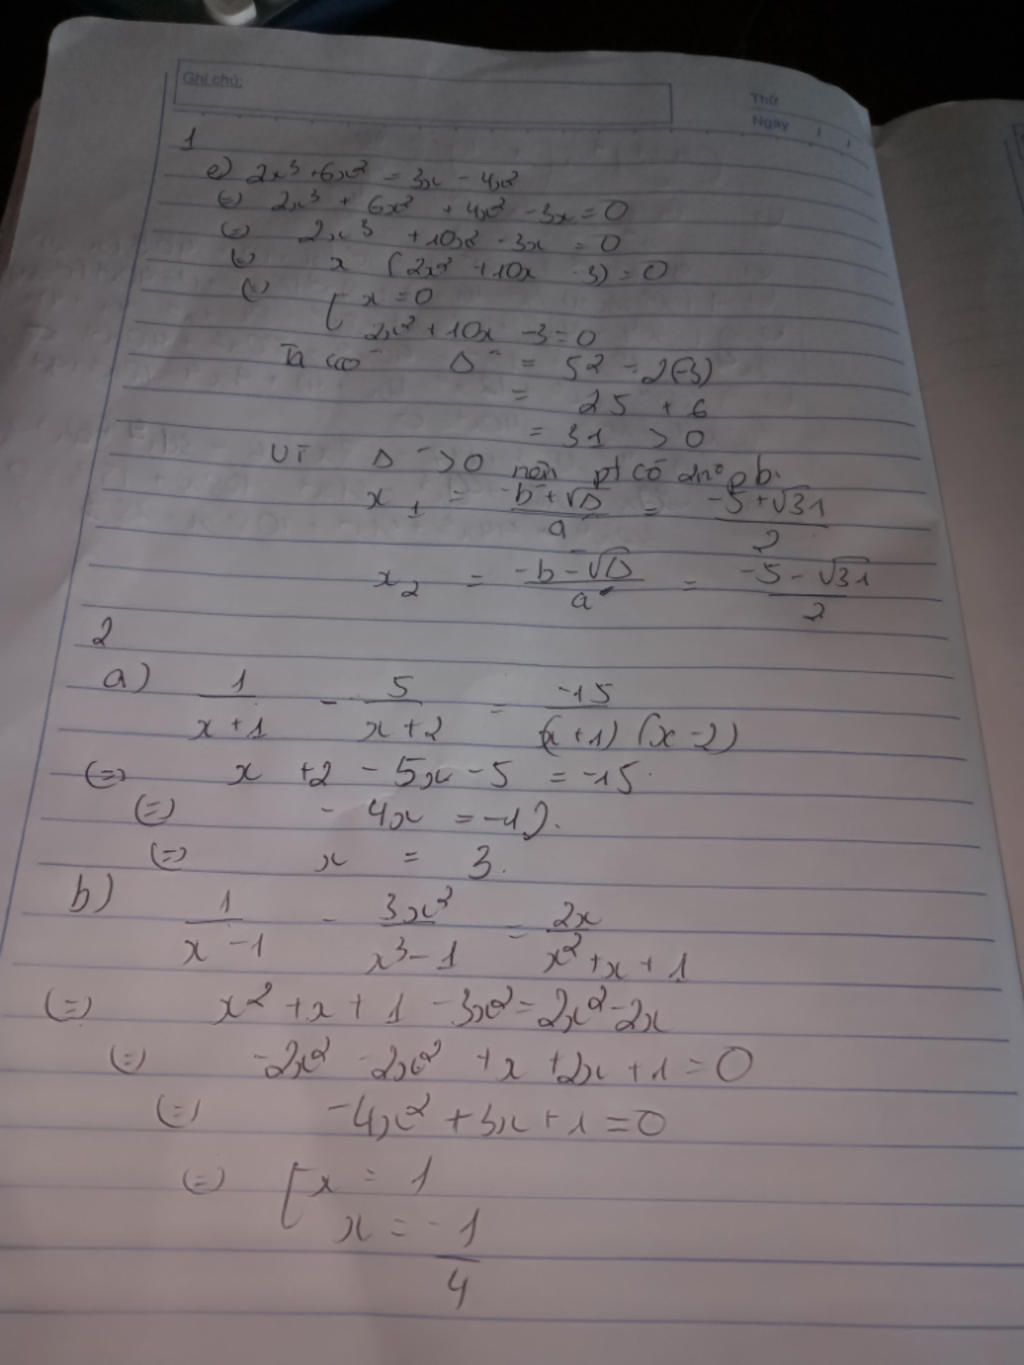 Ghi chú:
Thứ
Ngày / /
1
e) 2x³ + 6x² = 3x - 4x²
(=) 2x³ + 6x² + 4x² - 3x = 0
(=) 2x³ + 10x² - 3x = 0
(=) x (2x² + 10x - 3) = 0
(=) [ x = 0
2x² + 10x - 3 = 0
Ta có Δ' = 5² - 2(-3)
= 25 + 6
= 31 > 0
Vì Δ' > 0 nên pt có 2n⁰ pb.
x₁ = (-b' + √Δ')/a = (-5 + √31)/2
x₂ = (-b' - √Δ')/a = (-5 - √31)/2
2
a) 1/(x+1) - 5/(x+2) = -15/((x+1)(x-2))
(=) x + 2 - 5x - 5 = -15.
(=) - 4x = -12.
(=) x = 3.
b) 1/(x-1) - 3x²/(x³-1) = 2x/(x²+x+1)
(=) x² + x + 1 - 3x² = 2x² - 2x
(=) -2x² - 2x² + x + 2x + 1 = 0
(=) -4x² + 3x + 1 = 0
(=) [ x = 1
x = -1/4